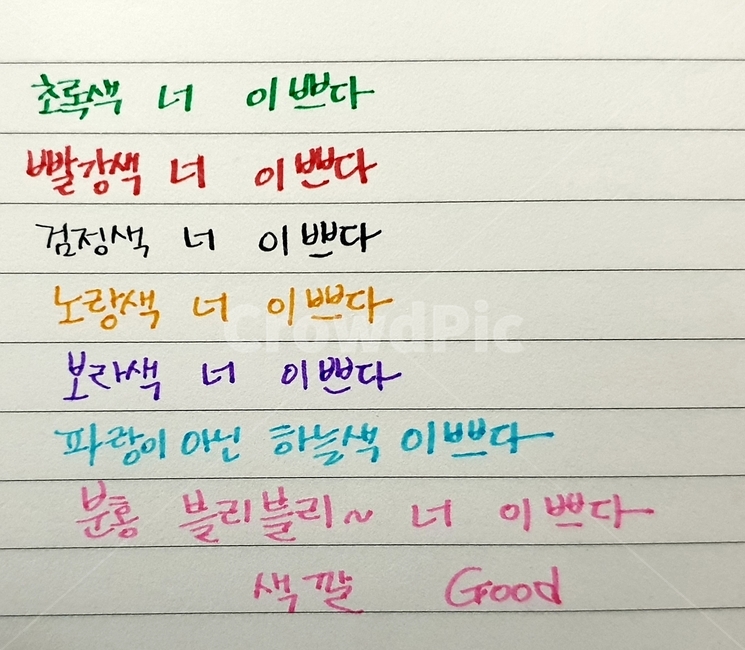 초록색 너 이쁘다
빨강색 너 이쁘다
검정색 너 이쁘다
노랑색 너 이쁘다
CrowdPic
보라색 너 이쁘다
파랑이 아닌 하늘색 이쁘다
분홍 블리블리~ 너 이쁘다
색깔 Good